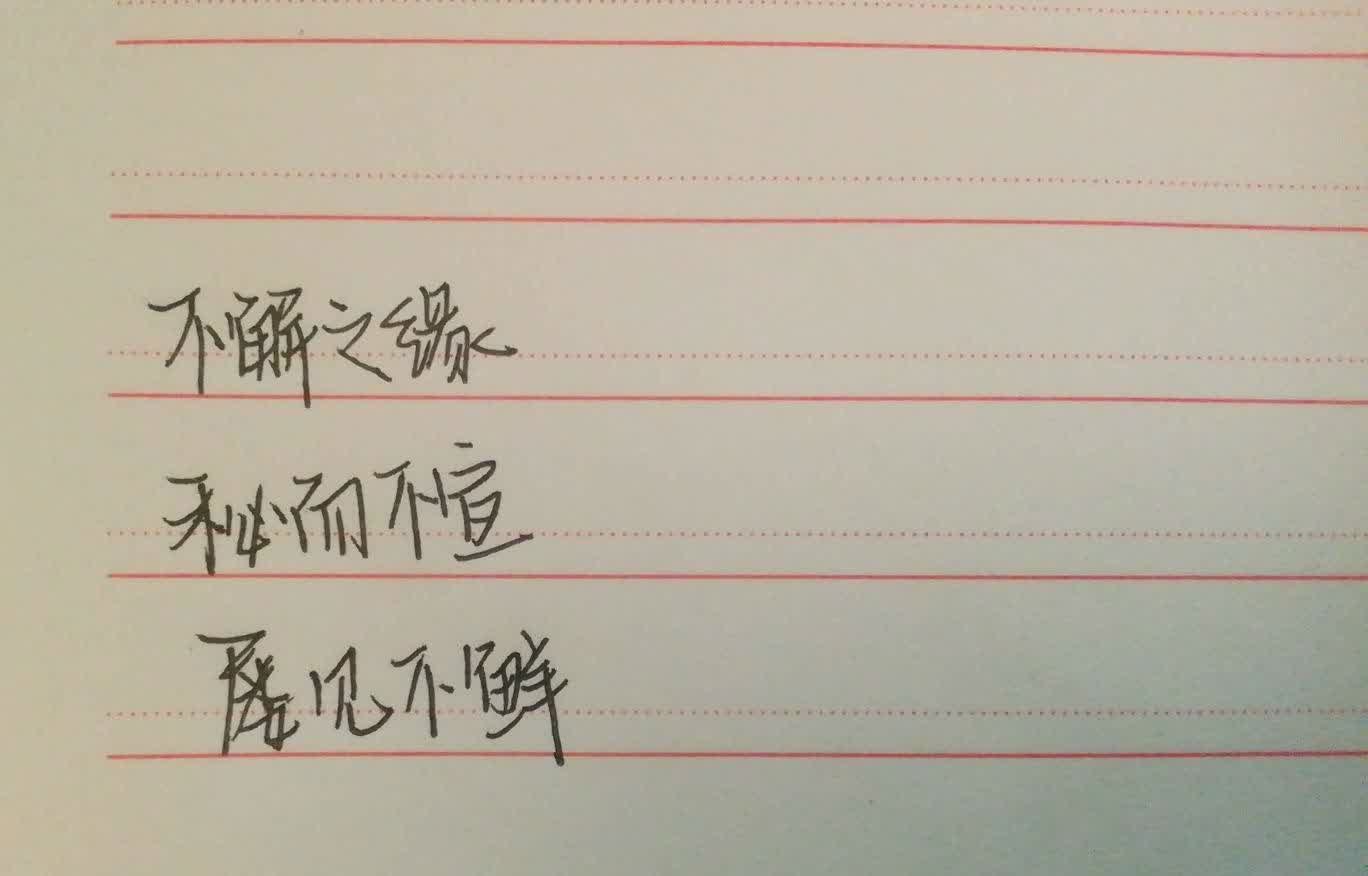 不解之缘
秘而不宣
屡见不鲜